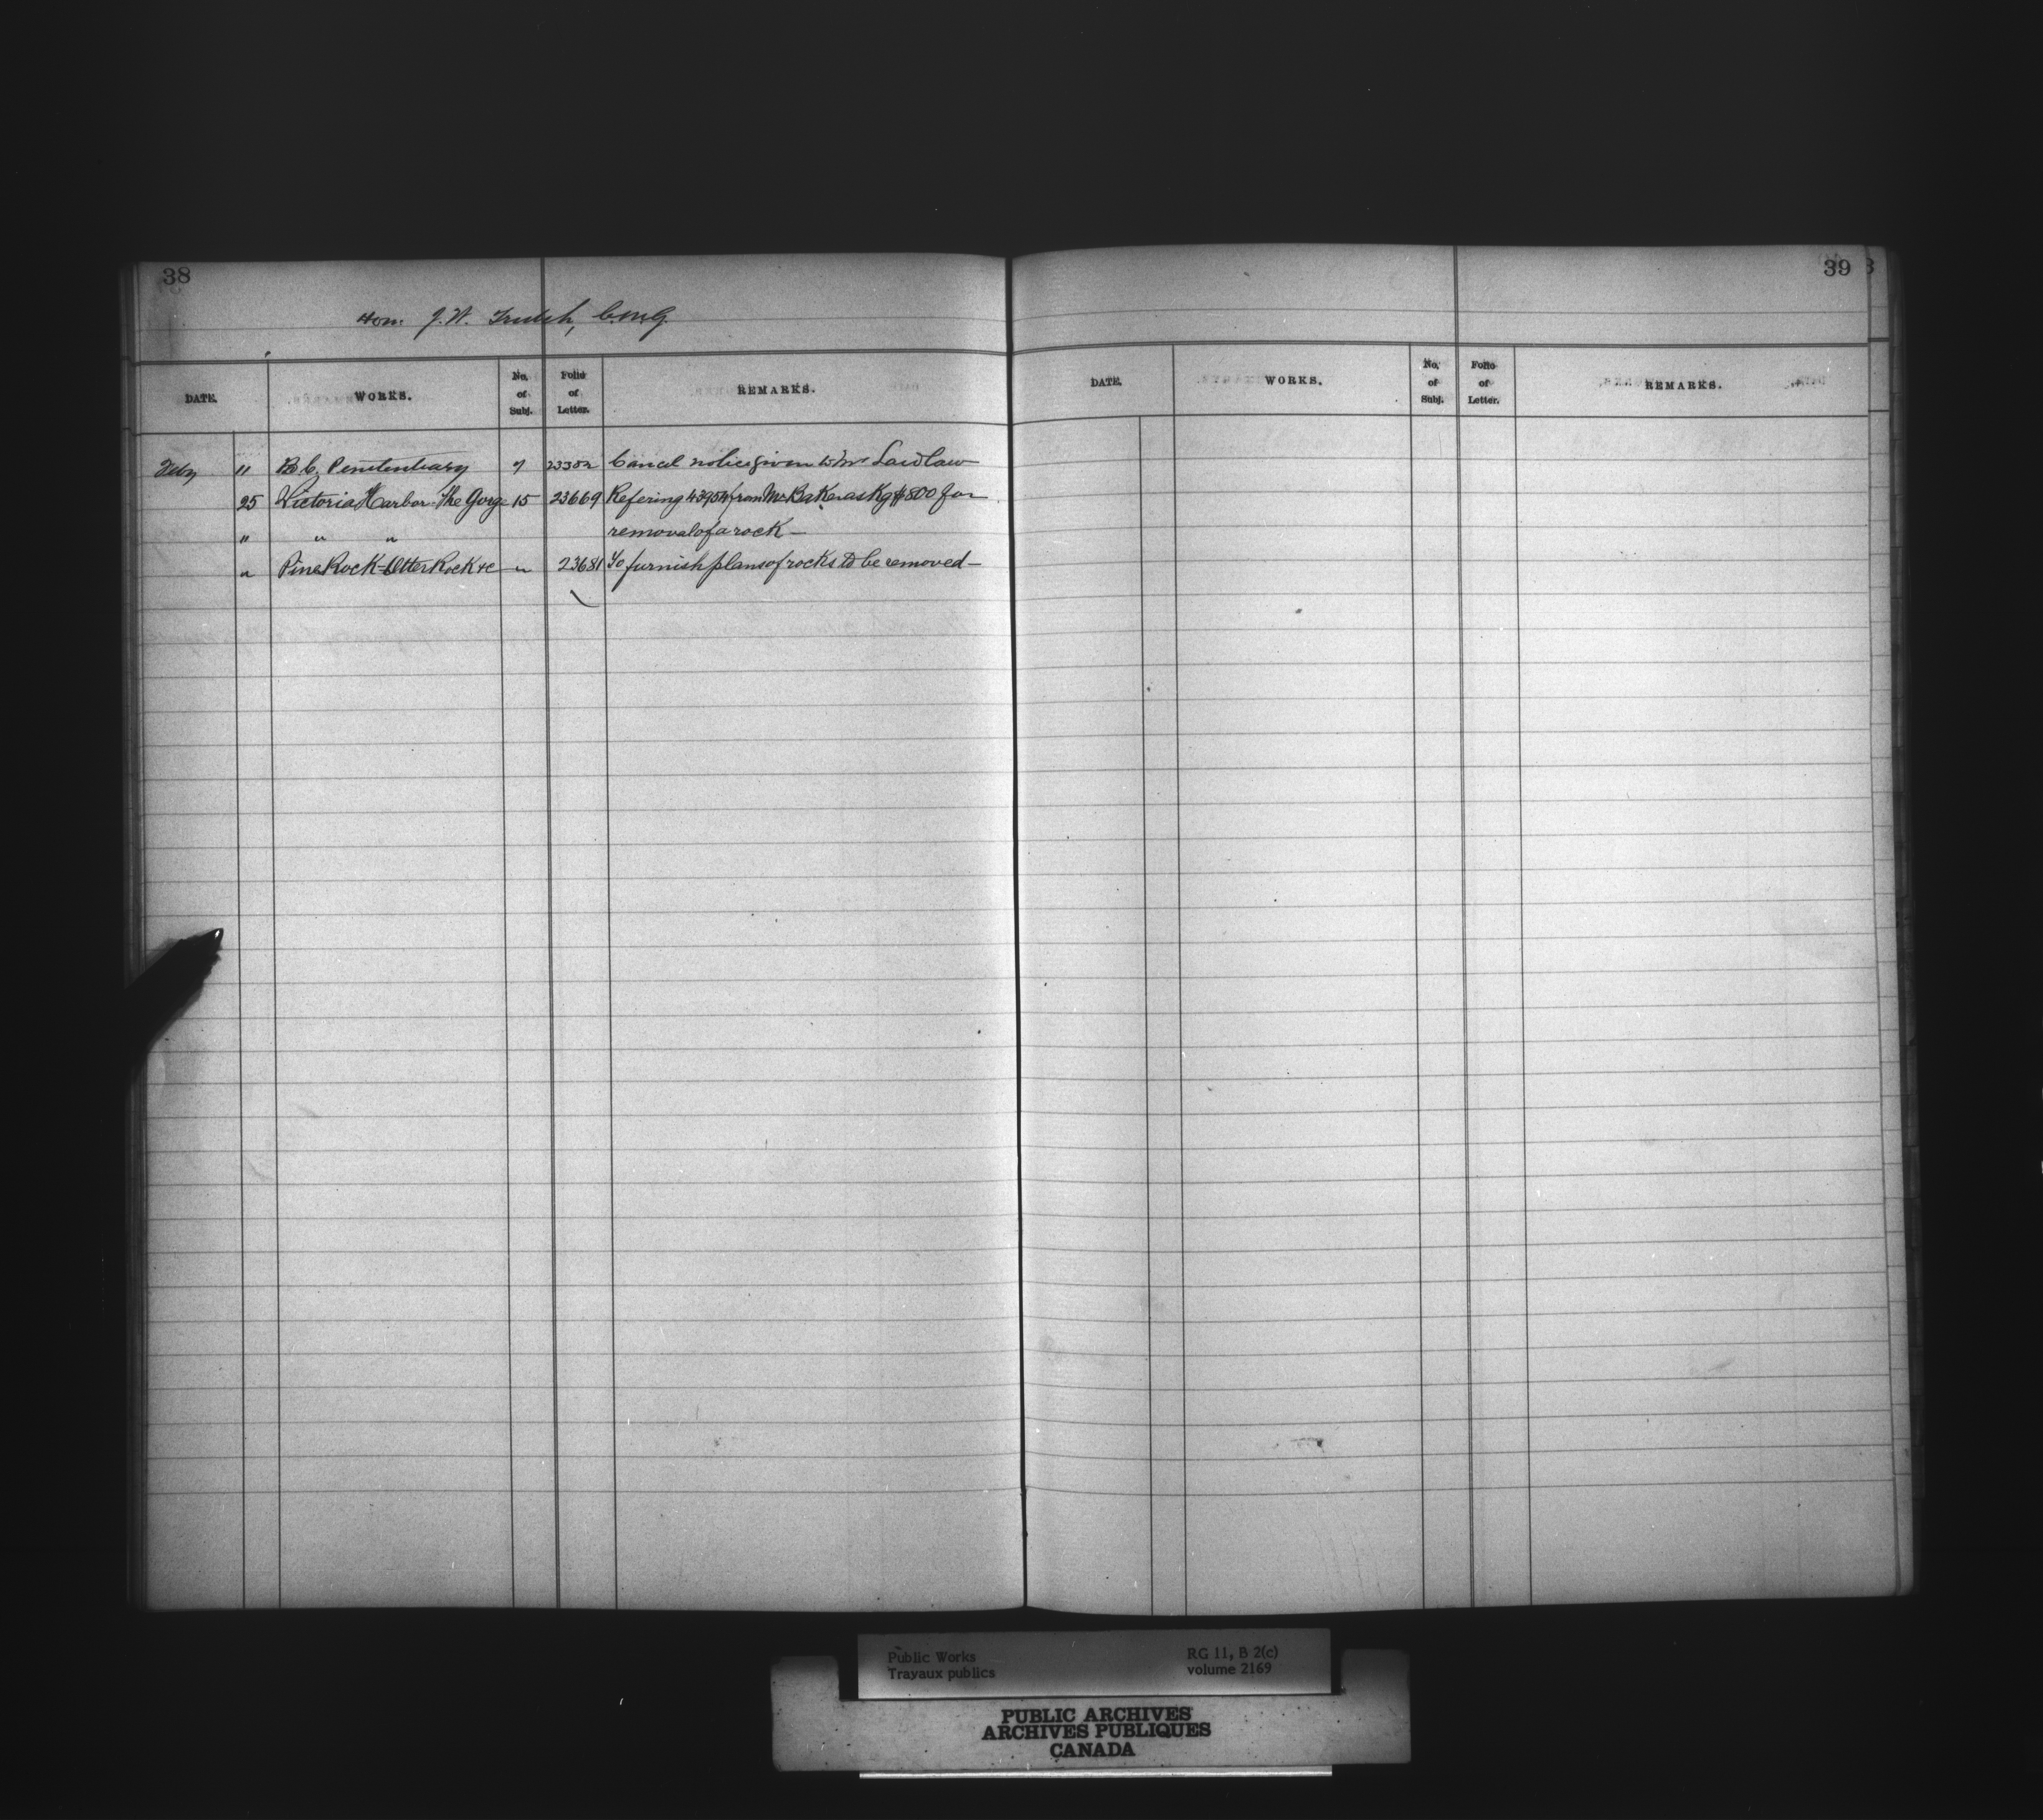 38
Hon. J. W. Trutch, C.M.G.
DATE. WORKS. No. of Subj. Folio of Letter. REMARKS.
Feby " B. C. Penitentiary 7 23382 Cancel notice given to Mr Laidlaw
25 Victoria Harbor - The Gorge 15 23669 Refering 43954 from Mr Baker askg $800 for
" " " removal of a rock —
" Pine Rock - Otter Rock &c " 23681 To furnish plans of rocks to be removed —
39
DATE. WORKS. No. of Subj. Folio of Letter. REMARKS.
Public Works RG 11, B 2(c)
Travaux publics volume 2169
PUBLIC ARCHIVES
ARCHIVES PUBLIQUES
CANADA